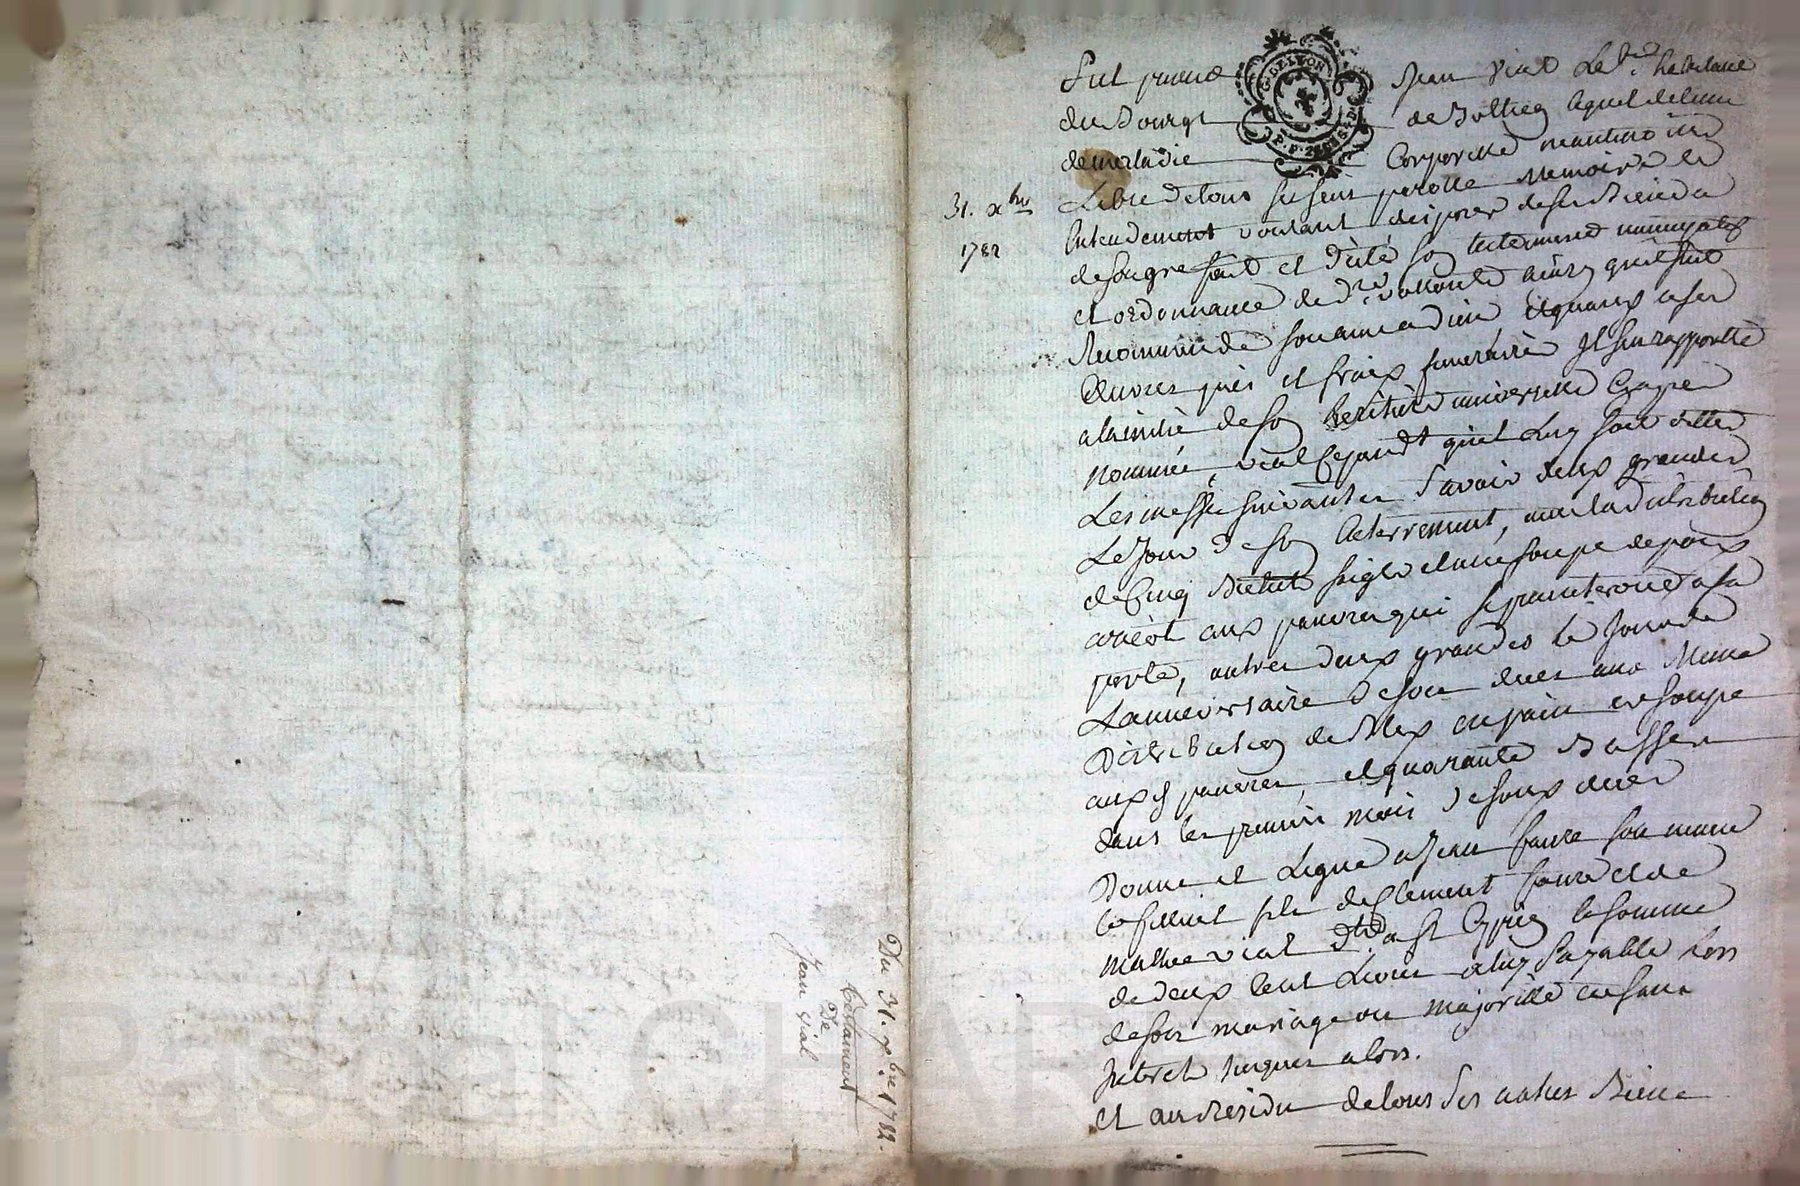 Du 31. xbre 1782.
Testament
De
Jean vial
31. xbre
1782
G. DE LYON
Fut present Jean Vial habitant
du Bourg de Bothéon lequel detenu
de maladie Corporelle neantmoins
Libre de tous ses sens parolle Memoire et
Entendement voulant disposer de ses Biens a
de son gré fait et dicté son testament nuncupatif
et ordonnance de dre volonté ainsy quil suit
Recommande son ame a dieu et quant a ses
Œuvres pies et fraix funeraire Il sen rapporte
a la de son heritiere universelle Cy apres
nommée, veut Cependt quil Luy soit dittes
Les messes suivantes Savoir deux grandes
Le Jour de son Enterrement, avec la distribution
de Cinq Bichets seigle et une soupe de poix
aux pauvres qui se presenteront a sa
porte, autres deux grandes le Jour de
L'anneversaire de son deces avec Meme
Distribution de en pain et soupe
aux pauvres, et quarante Basses
dans les premiers mois de son deces
Donne et Legue a Jean faure son
fils de Clement faure et de
vial a St Cyprien la somme
de deux Cent Livres a luy payable Lors
de son mariage ou majorité en sans
Interet Jusques alors.
et au Residu de tous ses autres Biens
Pascal CHAR